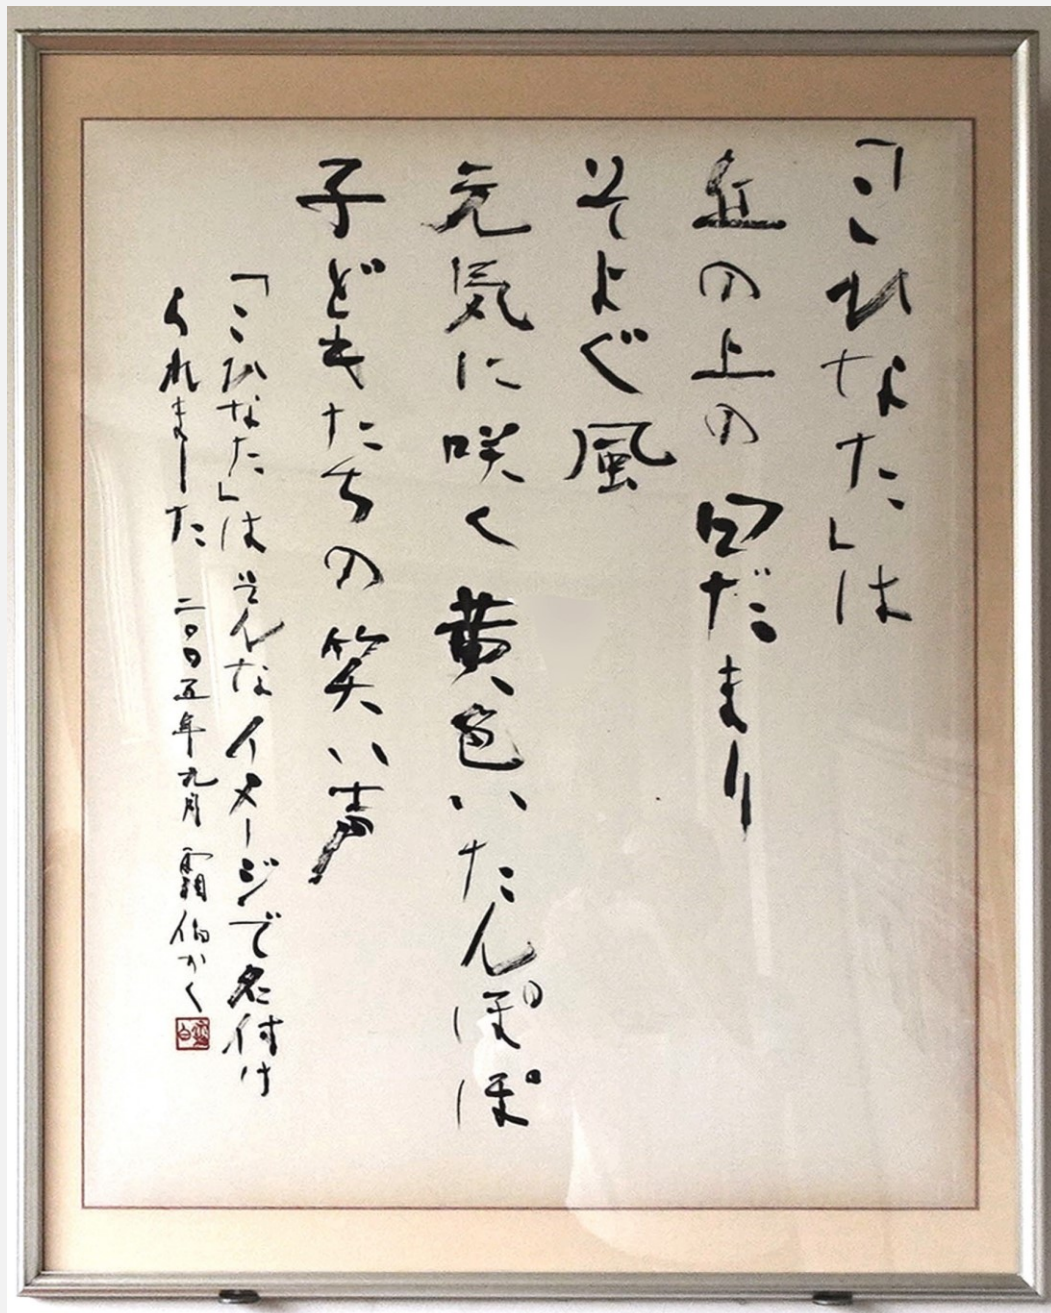 「こひなた」は
丘の上の日だまり
そよぐ風
元気に咲く黄色いたんぽぽ
子どもたちの笑い声
「こひなた」はそんなイメージで名付け
られました 二〇〇五年九月 霜伯かく